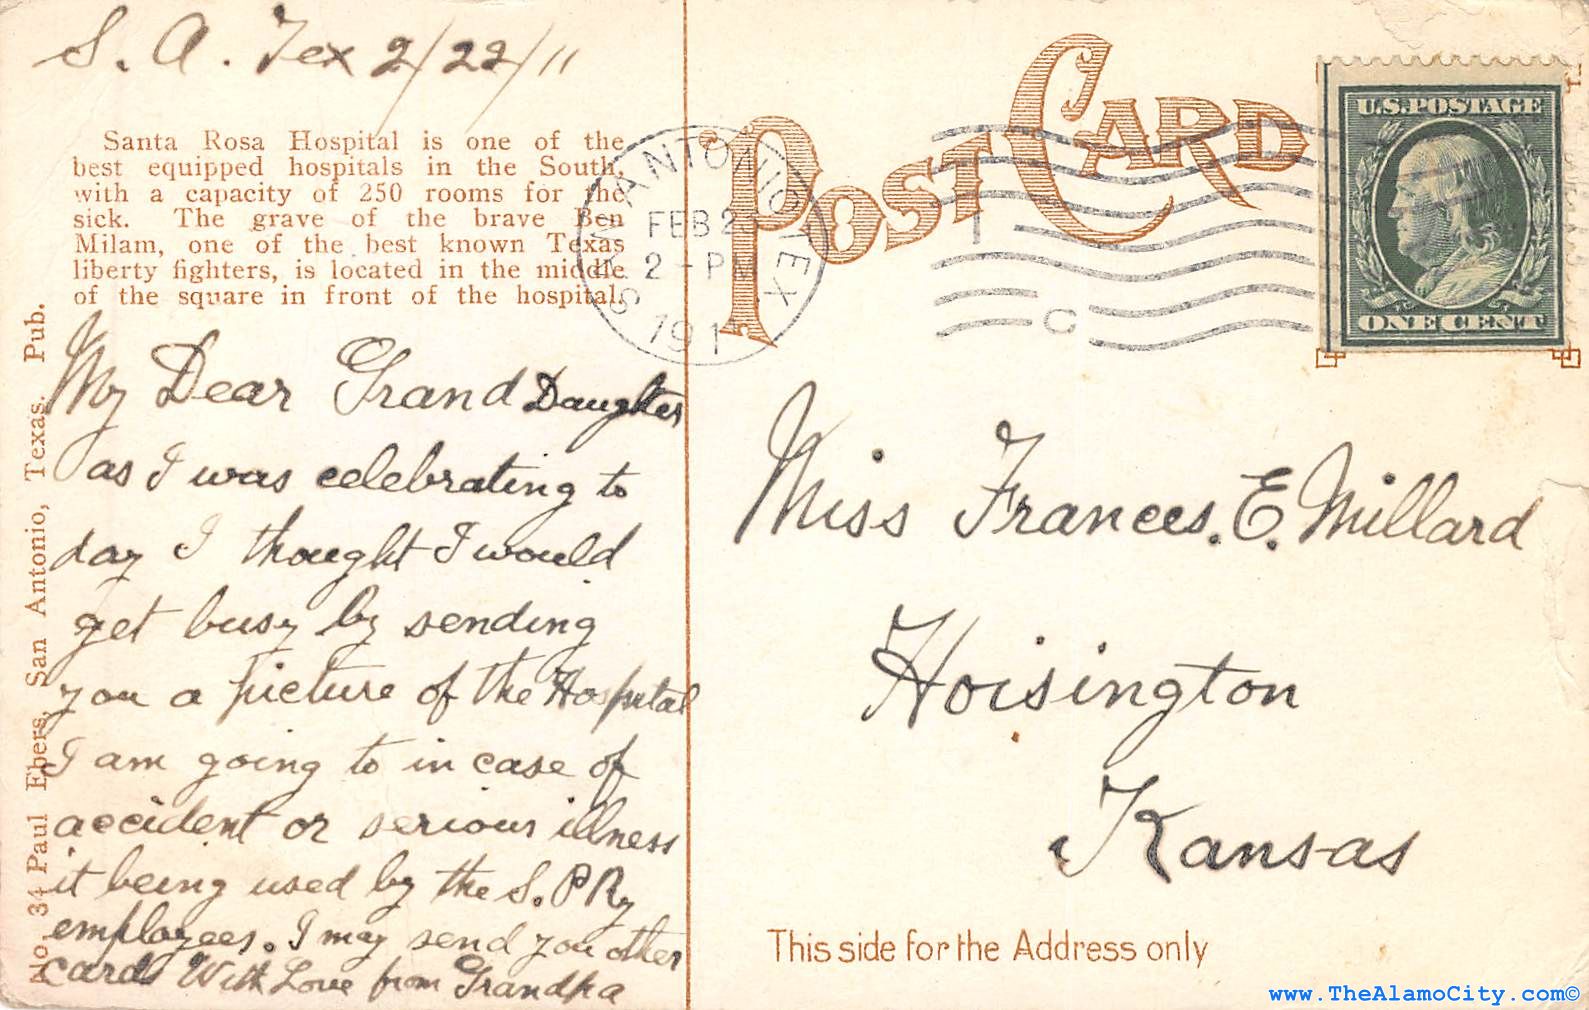 S. A. Tex 2/22/11
Santa Rosa Hospital is one of the
best equipped hospitals in the South,
with a capacity of 250 rooms for the
sick. The grave of the brave Ben
Milam, one of the best known Texas
liberty fighters, is located in the middle
of the square in front of the hospital.
My Dear Grand Daughter
as I was celebrating to
day I thought I would
get busy by sending
you a picture of the Hospital
I am going to in case of
accident or serious illness
it being used by the S. P Ry
employees. I may send you other
cards With Love from Grandpa
No 34 Paul Ebers, San Antonio, Texas. Pub.
POST CARD
SAN ANTONIO, TEX.
FEB 2
2 - PM
191
C
U.S. POSTAGE
ONE CENT
Miss Frances. E. Millard
Hoisington
Kansas
This side for the Address only
www.TheAlamoCity.com©